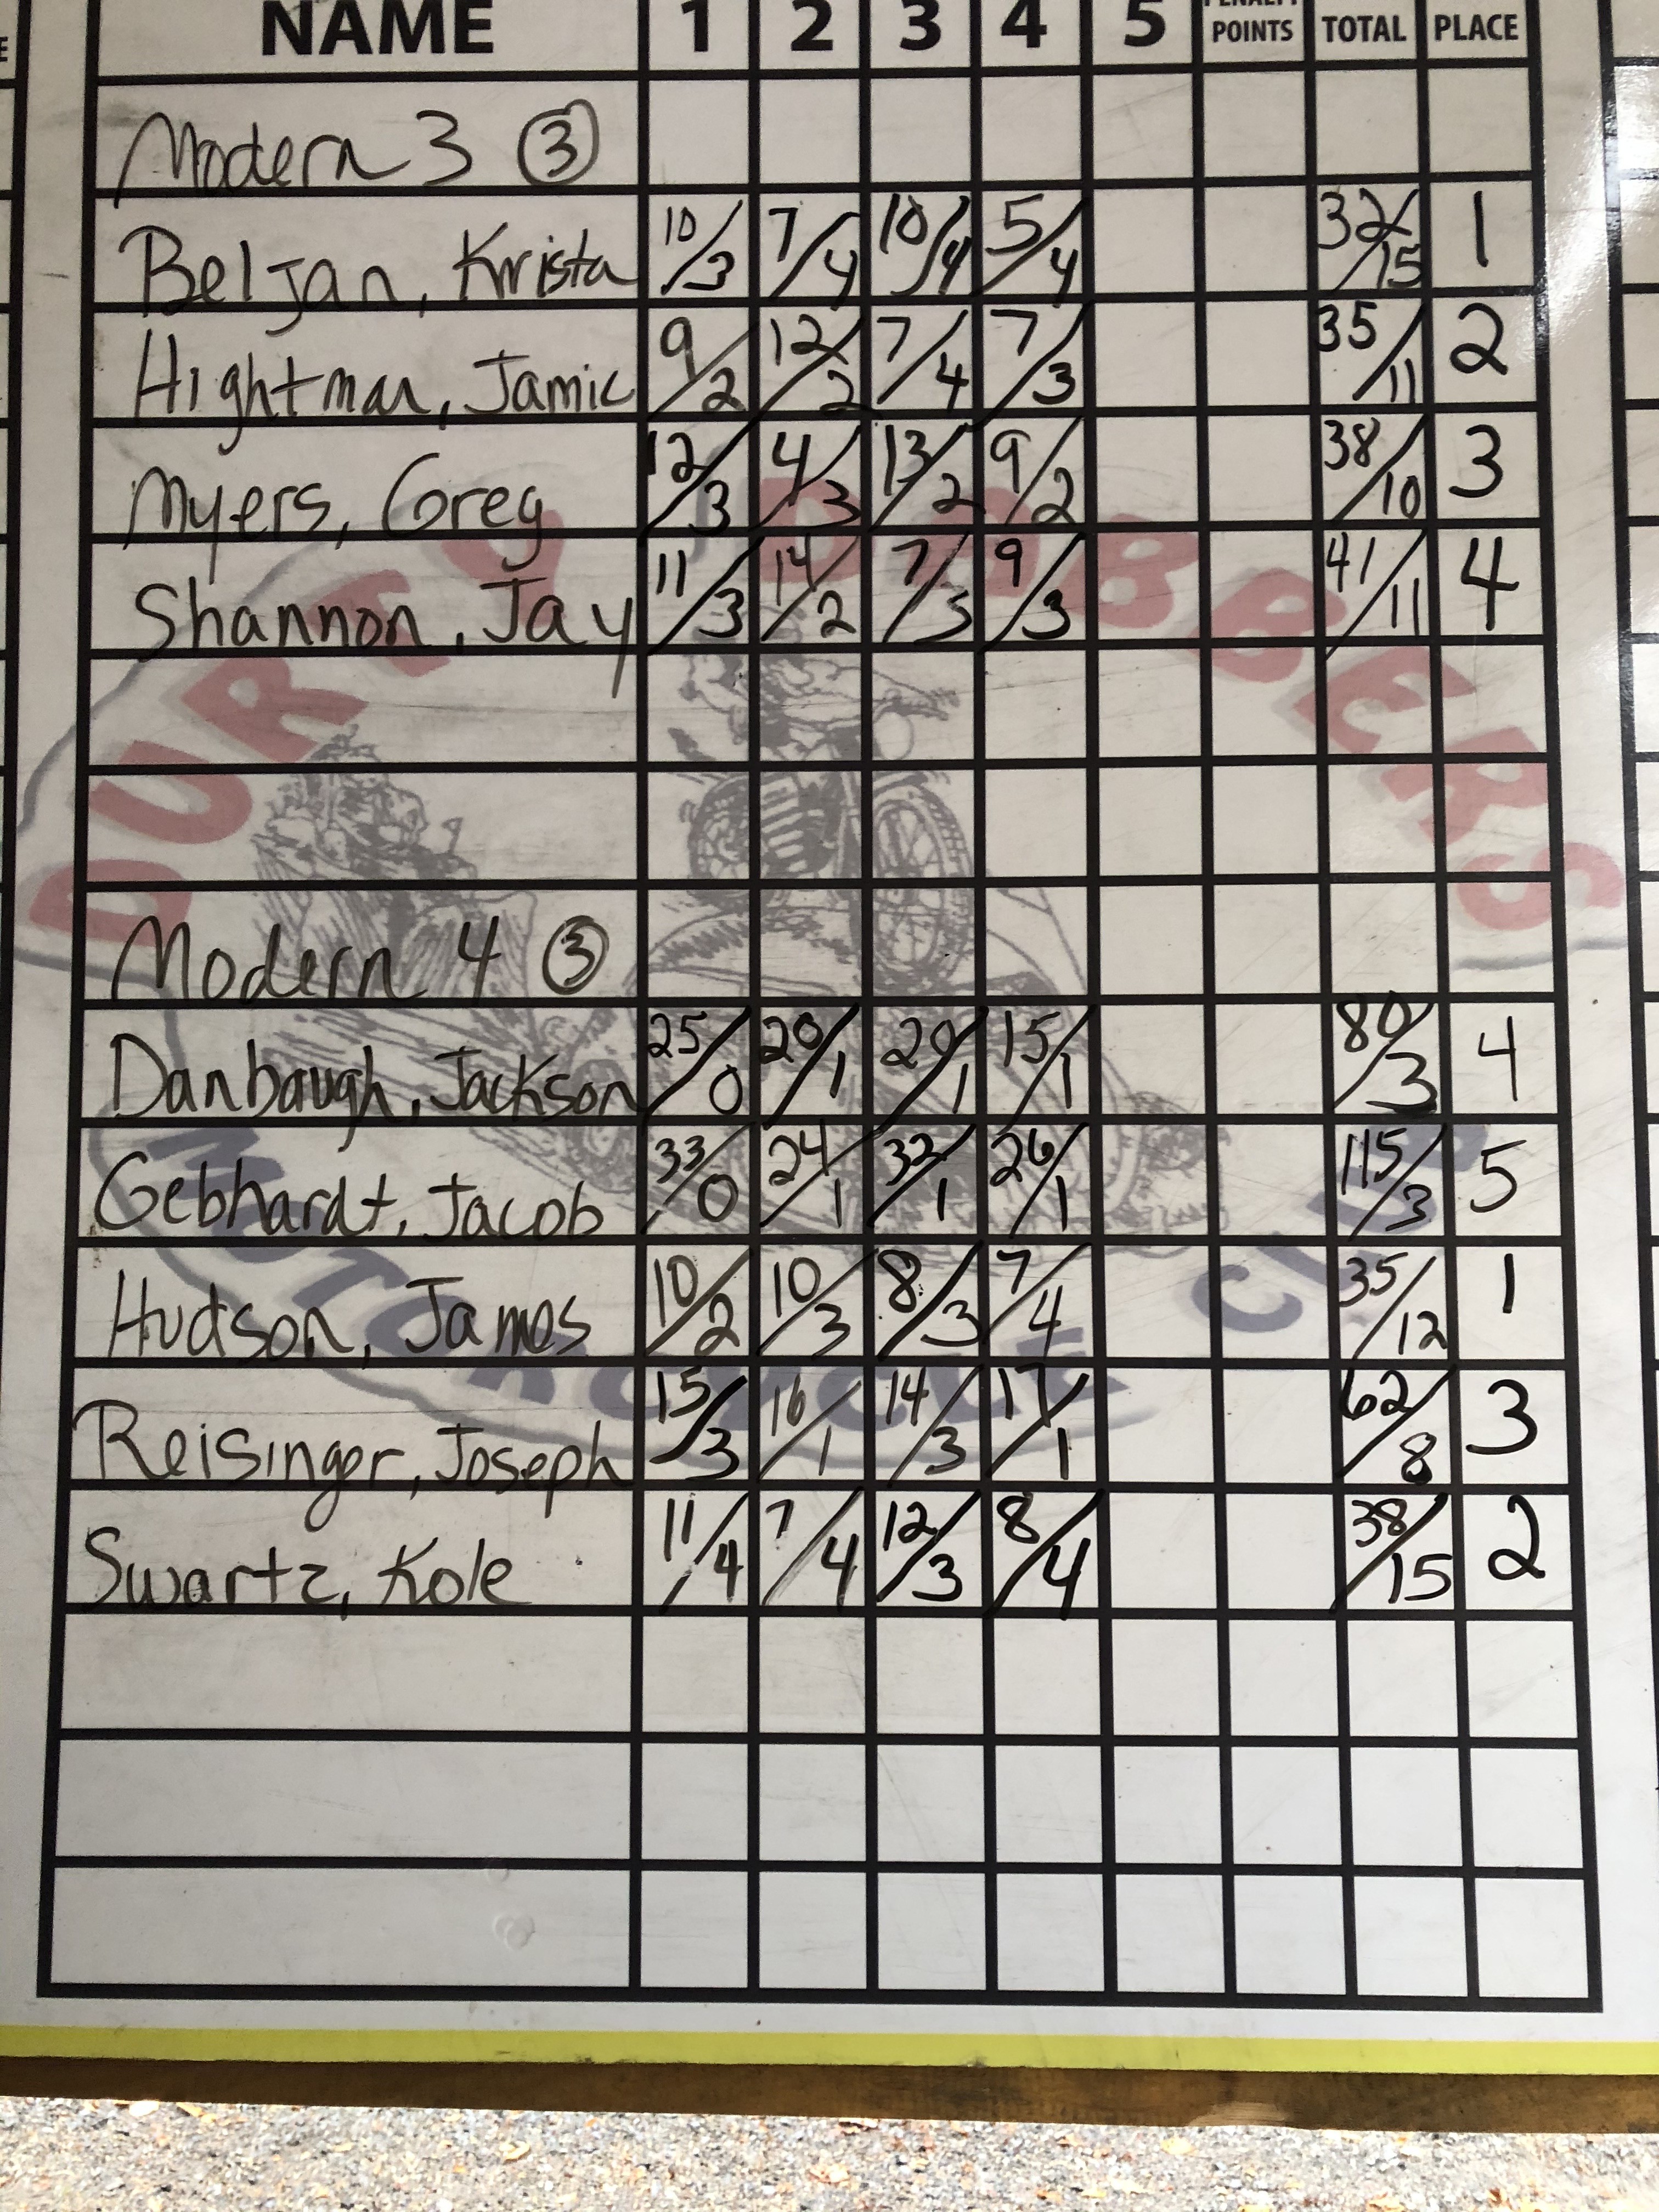 NAME 1 2 3 4 5 PENALTY POINTS TOTAL PLACE
Modern 3 ③
Beljan, Krista 10/3 7/4 10/4 5/4 32/15 1
Hightman, Jamie 9/2 12/2 7/4 7/3 35/11 2
Myers, Greg 12/3 4/3 13/2 9/2 38/10 3
Shannon, Jay 11/3 14/2 7/3 9/3 41/11 4
DURTY DABBERS
Modern 4 ③
Danbaugh, Jackson 25/0 20/1 20/1 15/1 80/3 4
Gebhardt, Jacob 33/0 24/1 32/1 26/1 115/3 5
Hudson, James 10/2 10/3 8/3 7/4 35/12 1
Reisinger, Joseph 15/3 16/1 14/3 17/1 62/8 3
Swartz, Kole 11/4 7/4 12/3 8/4 38/15 2
MOTORCYCLE CLUB